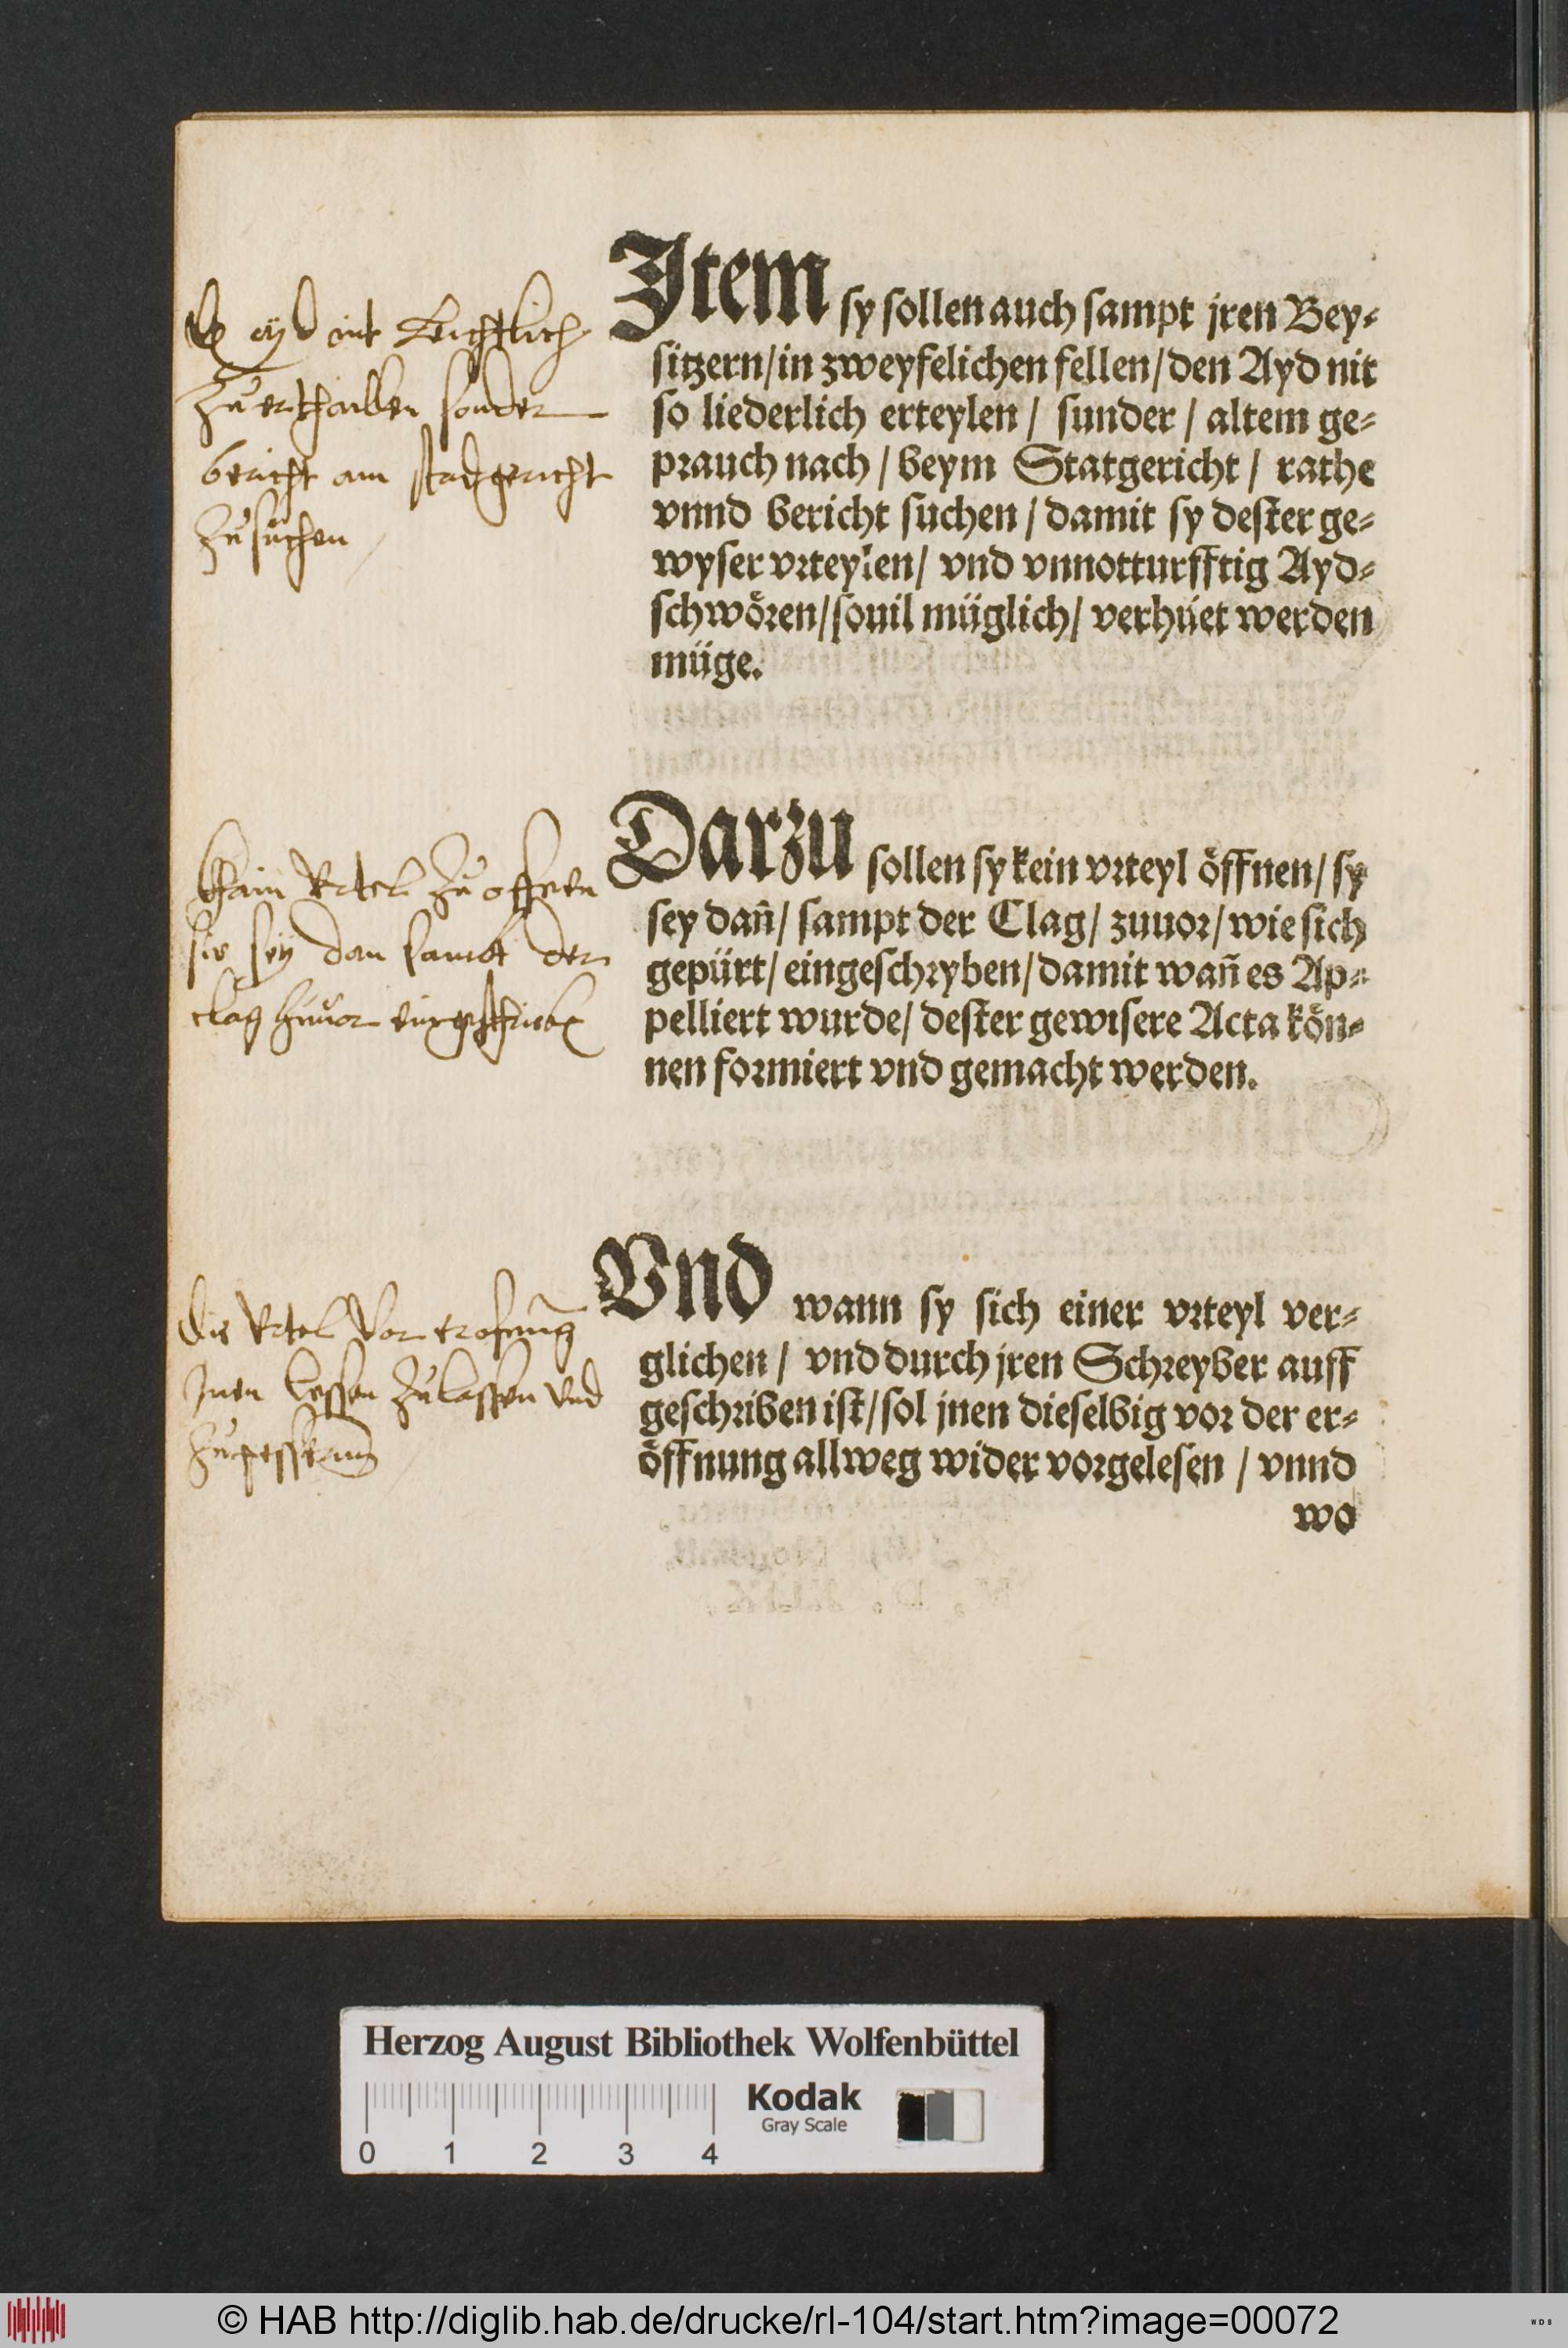 Item sy sollen auch sampt jren Bey⸗
sitzern/in zweyfelichen fellen/den Ayd nit
so liederlich erteylen / sunder / altem ge⸗
prauch nach / beym Statgericht / rathe
vnnd bericht suchen / damit sy dester ge⸗
wyser vrteylen/ vnd vnnotturfftig Ayd⸗
schwören/souil müglich/ verhüet werden
müge.
eyd nit Leichtlich
Zu erthaillen sonder
bericht am stadgericht
Zu suchen
Darzu sollen sy kein vrteyl öffnen/ sy
sey dañ/ sampt der Clag/ zuuor/ wie sich
gepürt/ eingeschryben/ damit wañ es Ap⸗
pelliert wurde/ dester gewisere Acta kön⸗
nen formiert vnd gemacht werden.
Khain Vrtel Zu offnen
sie sey dan sambt der
clag Zuuor
Vnd wann sy sich einer vrteyl ver⸗
glichen / vnd durch jren Schreyber auff
geschriben ist/sol jnen dieselbig vor der er⸗
öffnung allweg wider vorgelesen / vnnd
wo
die Vrtel Vor erofnung
Jnen lessen Zulassen vnd
Herzog August Bibliothek Wolfenbüttel
0 1 2 3 4
Kodak
Gray Scale
© HAB http://diglib.hab.de/drucke/rl-104/start.htm?image=00072